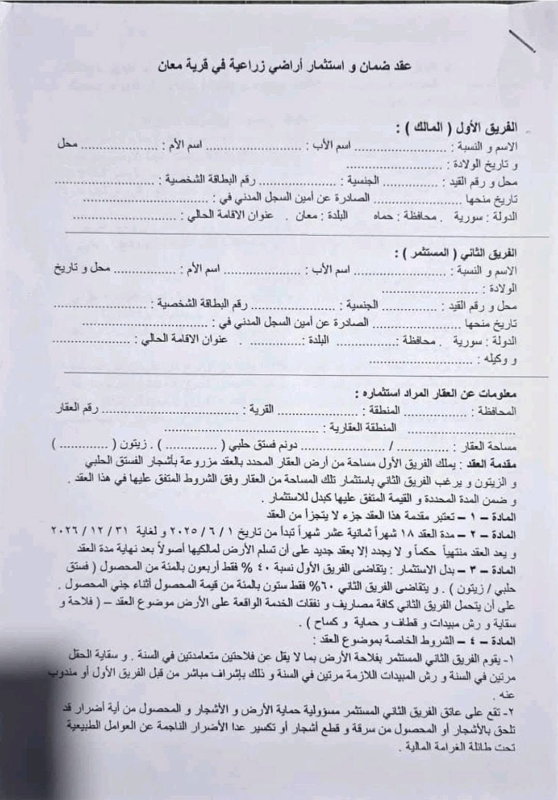 عقد ضمان و استثمار أراضي زراعية في قرية معان
الفريق الأول ( المالك ) :
الاسم و النسبة : ........................ اسم الأب: ........................ اسم الأم: .................... محل
و تاريخ الولادة : ........................
محل و رقم القيد : ................ الجنسية : .................... رقم البطاقة الشخصية : ........................
تاريخ منحها ........................ الصادرة عن أمين السجل المدني في : ................................
الدولة : سورية . محافظة : حماه البلدة : معان . عنوان الاقامة الحالي : ................................
الفريق الثاني ( المستثمر ) :
الاسم و النسبة : ........................ اسم الأب: .................... اسم الأم: ................ محل و تاريخ
الولادة : ........................
محل و رقم القيد : ................ الجنسية : .................... رقم البطاقة الشخصية : ........................
تاريخ منحها ........................ الصادرة عن أمين السجل المدني في : ................................
الدولة : سورية . محافظة : ................ البلدة : ............. عنوان الاقامة الحالي : ....................
و وكيله : ................................
معلومات عن العقار المراد استثماره :
المحافظة : .................... المنطقة : .................... القرية : ............................ رقم العقار
............................ المنطقة العقارية : ........................
مساحة العقار : ............ / .................... دونم فستق حلبي ( ............. ) . زيتون ( ............ )
مقدمة العقد : يملك الفريق الأول مساحة من أرض العقار المحدد بالعقد مزروعة بأشجار الفستق الحلبي
و الزيتون و يرغب الفريق الثاني باستثمار تلك المساحة من العقار وفق الشروط المتفق عليها في هذا العقد .
و ضمن المدة المحددة و القيمة المتفق عليها كبدل للاستثمار .
المادة – ١ – تعتبر مقدمة هذا العقد جزء لا يتجزأ من العقد
المادة – ٢ – مدة العقد ١٨ شهراً ثمانية عشر شهراً تبدأ من تاريخ ١ / ٦ / ٢٠٢٥ و لغاية ٣١ / ١٢ / ٢٠٢٦
و يعد العقد منتهياً حكماً و لا يجدد إلا بعقد جديد على أن تسلم الأرض لمالكيها أصولاً بعد نهاية مدة العقد
المادة – ٣ – بدل الاستثمار : يتقاضى الفريق الأول نسبة ٤٠ % فقط أربعون بالمئة من المحصول ( فستق
حلبي / زيتون ) . و يتقاضى الفريق الثاني ٦٠% فقط ستون بالمئة من قيمة المحصول أثناء جني المحصول .
على أن يتحمل الفريق الثاني كافة مصاريف و نفقات الخدمة الواقعة على الأرض موضوع العقد – ( فلاحة و
سقاية و رش مبيدات و قطاف و حماية و كساح ) .
المادة – ٤ – الشروط الخاصة بموضوع العقد :
١- يقوم الفريق الثاني المستثمر بفلاحة الأرض بما لا يقل عن فلاحتين متعامدتين في السنة . و سقاية الحقل
مرتين في السنة و رش المبيدات اللازمة مرتين في السنة و ذلك بإشراف مباشر من قبل الفريق الأول أو مندوب
عنه .
٢- تقع على عاتق الفريق الثاني المستثمر مسؤولية حماية الأرض و الأشجار و المحصول من أية أضرار قد
تلحق بالأشجار أو المحصول من سرقة و قطع أشجار أو تكسير عدا الأضرار الناجمة عن العوامل الطبيعية
تحت طائلة الغرامة المالية .